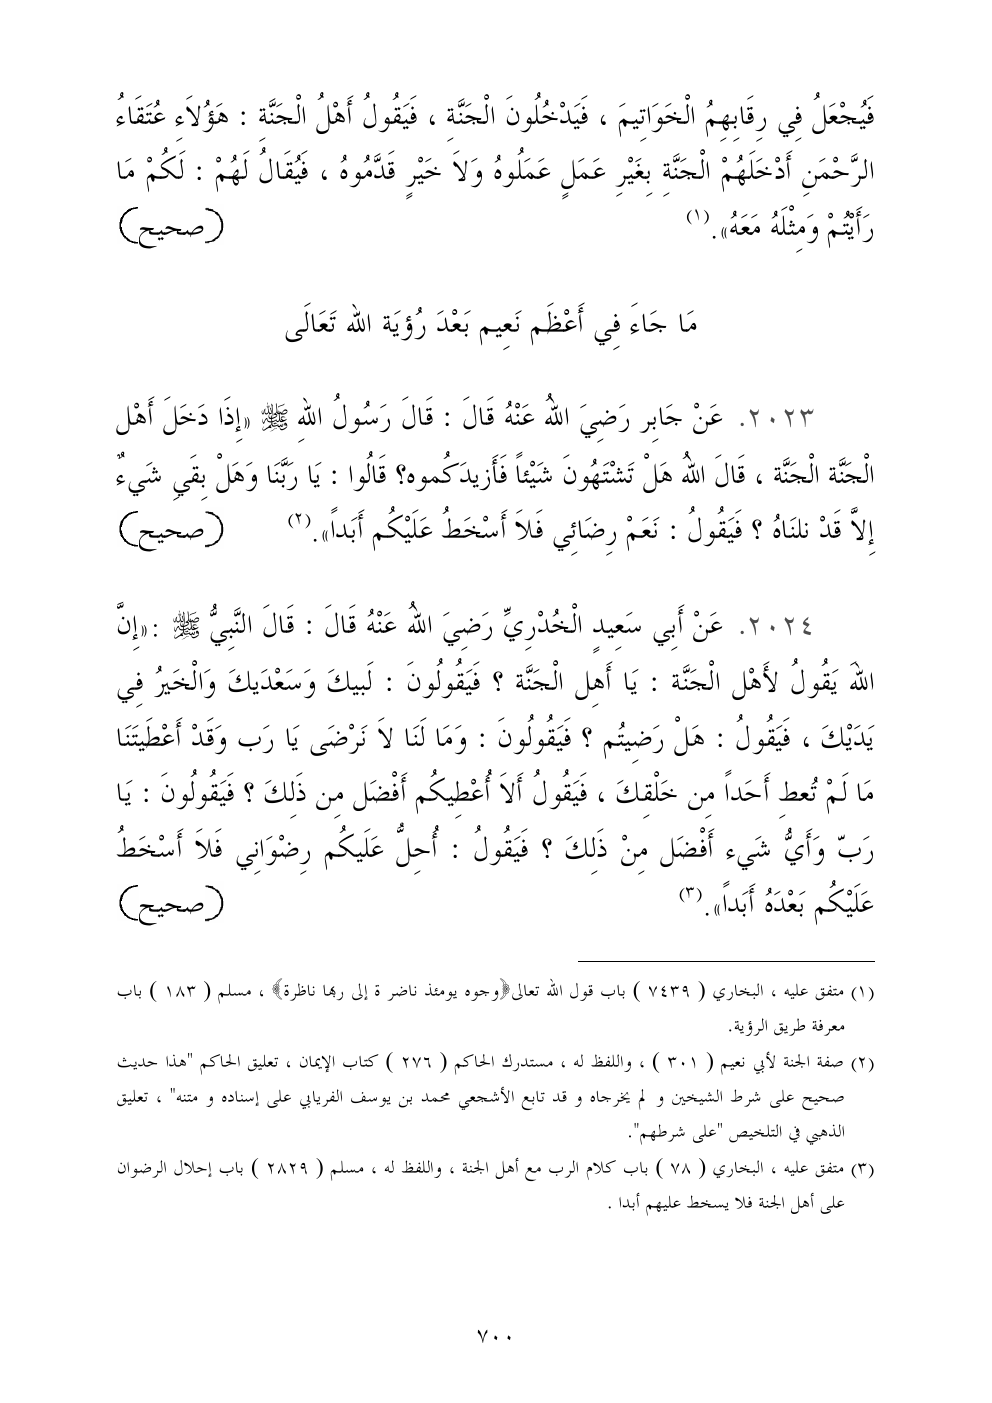 فَيُجْعَلُ فِي رِقَابِهِمُ الْخَوَاتِيمَ ، فَيَدْخُلُونَ الْجَنَّةِ ، فَيَقُولُ أَهْلُ الْجَنَّةِ : هَؤُلاَءِ عُتَقَاءُ
الرَّحْمَنِ أَدْخَلَهُمْ الْجَنَّةِ بِغَيْرِ عَمَلٍ عَمَلُوهُ وَلاَ خَيْرٍ قَدَّمُوهُ ، فَيُقَالُ لَهُمْ : لَكُمْ مَا
رَأَيْتُمْ وَمِثْلَهُ مَعَهُ». (١) (صحيح)
مَا جَاءَ فِي أَعْظَم نَعِيم بَعْدَ رُؤيَة الله تَعَالَى
٢٠٢٣. عَنْ جَابِر رَضِيَ اللهُ عَنْهُ قَالَ : قَالَ رَسُولُ اللهِ ﷺ «إِذَا دَخَلَ أَهْل
الْجَنَّة الْجَنَّة ، قَالَ اللهُ هَلْ تَشْتَهُونَ شَيْئاً فَأَزِيدَكُموه؟ قَالُوا : يَا رَبَّنَا وَهَلْ بِقَيِ شَيءٌ
إِلاَّ قَدْ نلنَاهُ ؟ فَيَقُولُ : نَعَمْ رِضَائِي فَلاَ أَسْخَطُ عَلَيْكُم أَبَداً». (٢) (صحيح)
٢٠٢٤. عَنْ أَبِي سَعِيدٍ الْخُدْرِيِّ رَضِيَ اللهُ عَنْهُ قَالَ : قَالَ النَّبِيُّ ﷺ :«إِنَّ
اللهَ يَقُولُ لأَهْل الْجَنَّة : يَا أَهل الْجَنَّة ؟ فَيَقُولُونَ : لَبيكَ وَسَعْدَيكَ وَالْخَيرُ فِي
يَدَيْكَ ، فَيَقُولُ : هَلْ رَضِيتُم ؟ فَيَقُولُونَ : وَمَا لَنَا لاَ نَرْضَى يَا رَب وَقَدْ أَعْطَيَتَنَا
مَا لَمْ تُعطِ أَحَداً مِن خَلْقِكَ ، فَيَقُولُ أَلاَ أُعْطِيكُم أَفْضَل مِن ذَلِكَ ؟ فَيَقُولُونَ : يَا
رَبّ وَأَيُّ شَيء أَفْضَل مِنْ ذَلِكَ ؟ فَيَقُولُ : أُحِلُّ عَلَيكُم رِضْوَانِي فَلاَ أَسْخَطُ
عَلَيْكُم بَعْدَهُ أَبَداً». (٣) (صحيح)
(١) متفق عليه ، البخاري ( ٧٤٣٩ ) باب قول الله تعالى﴿وجوه يومئذ ناضر ة إلى ربها ناظرة﴾ ، مسلم ( ١٨٣ ) باب
معرفة طريق الرؤية.
(٢) صفة الجنة لأبي نعيم ( ٣٠١ ) ، واللفظ له ، مستدرك الحاكم ( ٢٧٦ ) كتاب الإيمان ، تعليق الحاكم "هذا حديث
صحيح على شرط الشيخين و لم يخرجاه و قد تابع الأشجعي محمد بن يوسف الفريابي على إسناده و متنه" ، تعليق
الذهبي في التلخيص "على شرطهم".
(٣) متفق عليه ، البخاري ( ٧٨ ) باب كلام الرب مع أهل الجنة ، واللفظ له ، مسلم ( ٢٨٢٩ ) باب إحلال الرضوان
على أهل الجنة فلا يسخط عليهم أبدا .
٧٠٠